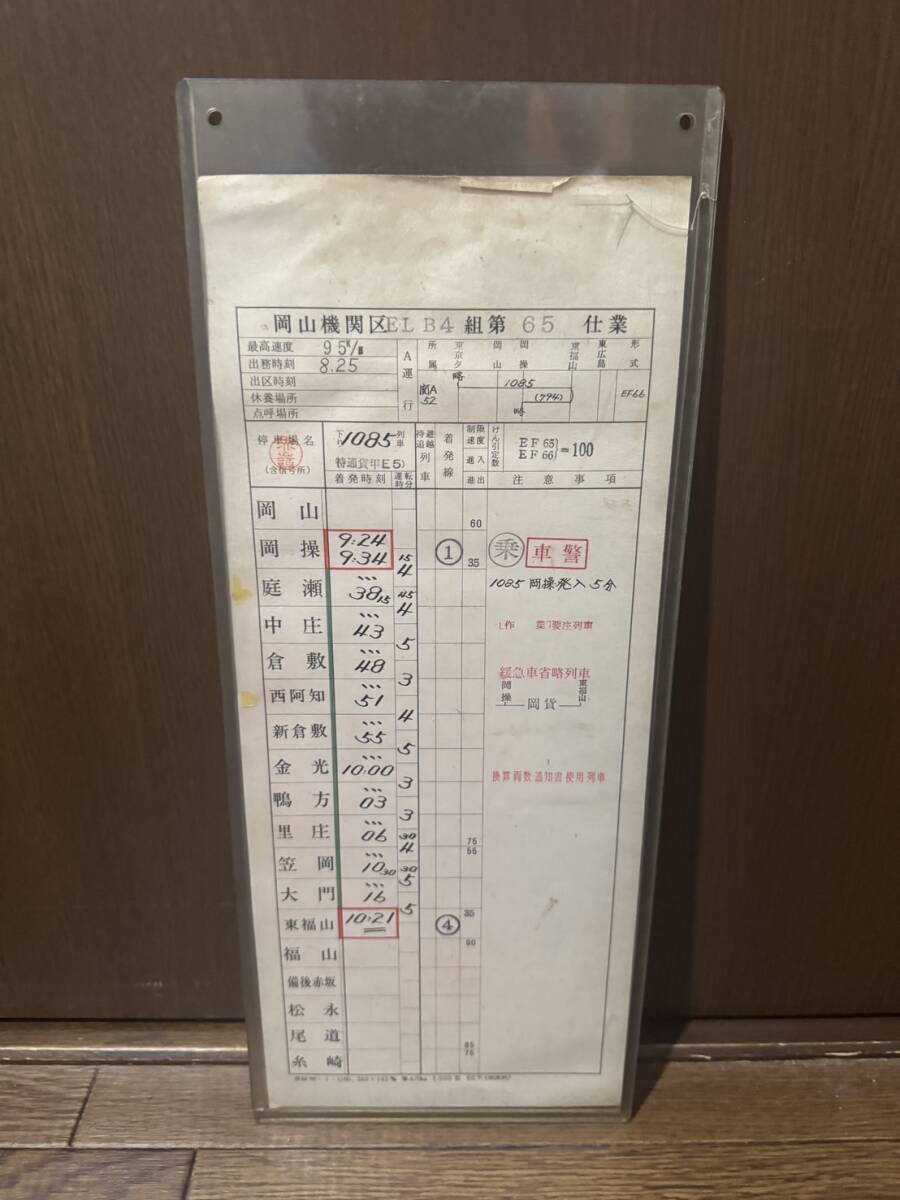 岡山機関区 EL B4 組第 65 仕業
最高速度 95
出務時刻 8.25
出区時刻
休養場所
点呼場所
A運行
所属 東京タ 岡山 岡操 東福山 東広島 形式
関A52 略 1085 (794) 略 EF66
停車場名
(含信号所)
下り 1085 列車
特通貨甲E5)
着発時刻
運転時分
待避追越列車
着発線
制限速度
進入
進出
けん引定数
EF65
EF66 =100
注意事項
岡山 60
岡操 9:24 9:34 ① 35
15
4
庭瀬 38 15
45
4
中庄 43
5
倉敷 48
3
西阿知 51
4
新倉敷 55
5
金光 10:00
3
鴨方 03
3
里庄 06 75 55
30
4
笠岡 10 30
30
5
大門 16
5
東福山 10:21 ④ 35
福山 90
備後赤坂
松永
尾道 65 75
糸崎
乗 車警
1085 岡操発入5分
緩急車省略列車
岡操 岡貨 東福山
換算両数通知書使用列車